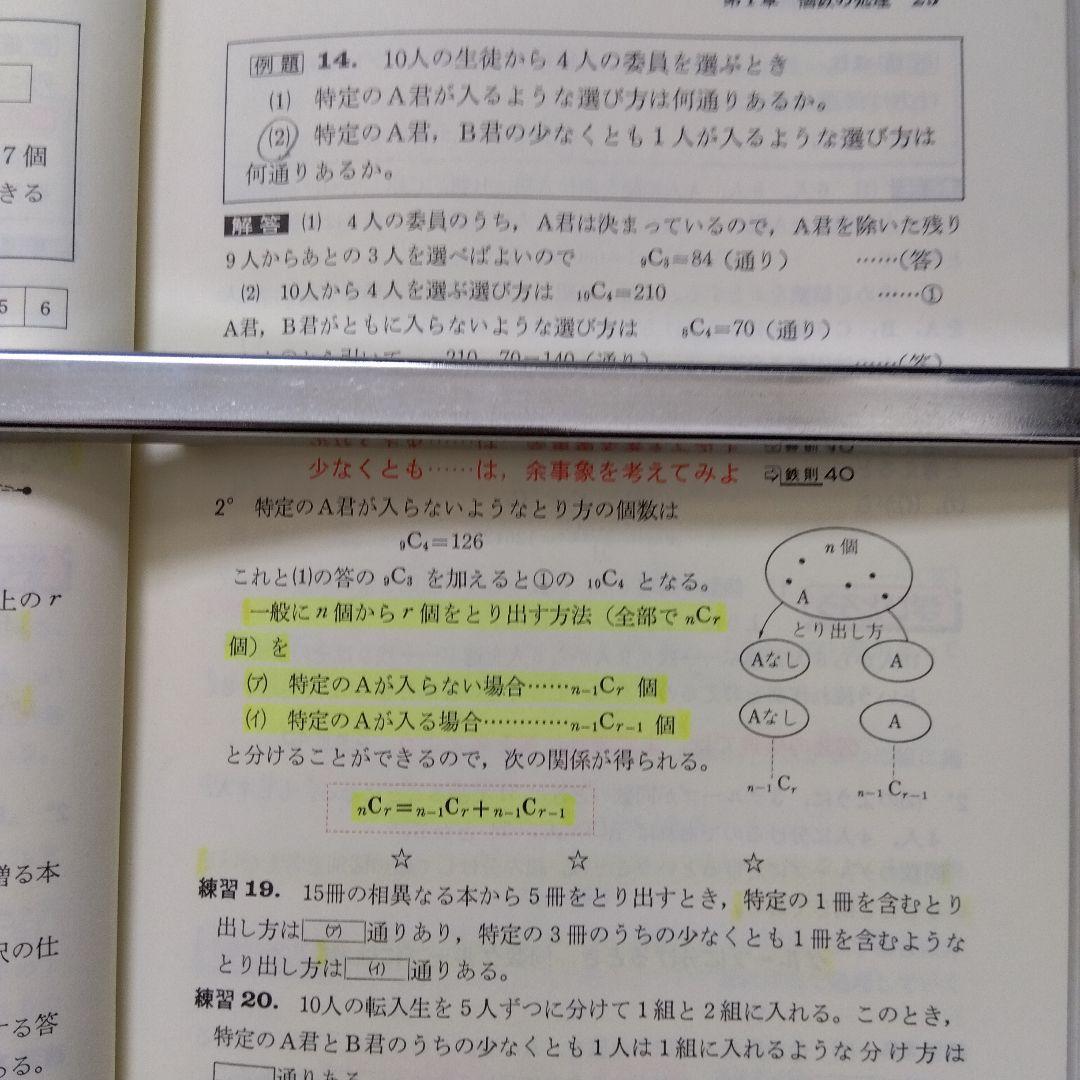 例題 14. 10人の生徒から4人の委員を選ぶとき
(1) 特定のA君が入るような選び方は何通りあるか。
(2) 特定のA君，B君の少なくとも1人が入るような選び方は
何通りあるか。
解答 (1) 4人の委員のうち，A君は決まっているので，A君を除いた残り
9人からあとの3人を選べばよいので ₉C₃=84（通り） ……(答)
(2) 10人から4人を選ぶ選び方は ₁₀C₄=210 ……①
A君，B君がともに入らないような選び方は ₈C₄=70（通り）
210-70=140（通り） ……(答)
少なくとも……は，余事象を考えてみよ ⇨鉄則40
2° 特定のA君が入らないようなとり方の個数は
₉C₄=126
これと(1)の答の ₉C₃ を加えると①の ₁₀C₄ となる。
一般にn個からr個をとり出す方法（全部で nCr
個）を
(ア) 特定のAが入らない場合……n-1Cr 個
(イ) 特定のAが入る場合…………n-1Cr-1 個
と分けることができるので，次の関係が得られる。
nCr=n-1Cr+n-1Cr-1
n個
A
とり出し方
Aなし A
Aなし A
n-1Cr n-1Cr-1
☆ ☆ ☆
練習19. 15冊の相異なる本から5冊をとり出すとき，特定の1冊を含むとり
出し方は (ア) 通りあり，特定の3冊のうちの少なくとも1冊を含むような
とり出し方は (イ) 通りある。
練習20. 10人の転入生を5人ずつに分けて1組と2組に入れる。このとき，
特定のA君とB君のうちの少なくとも1人は1組に入れるような分け方は
通りある
7個
きる
5 6
上のr
贈る本
沢の仕
ける答
ある。